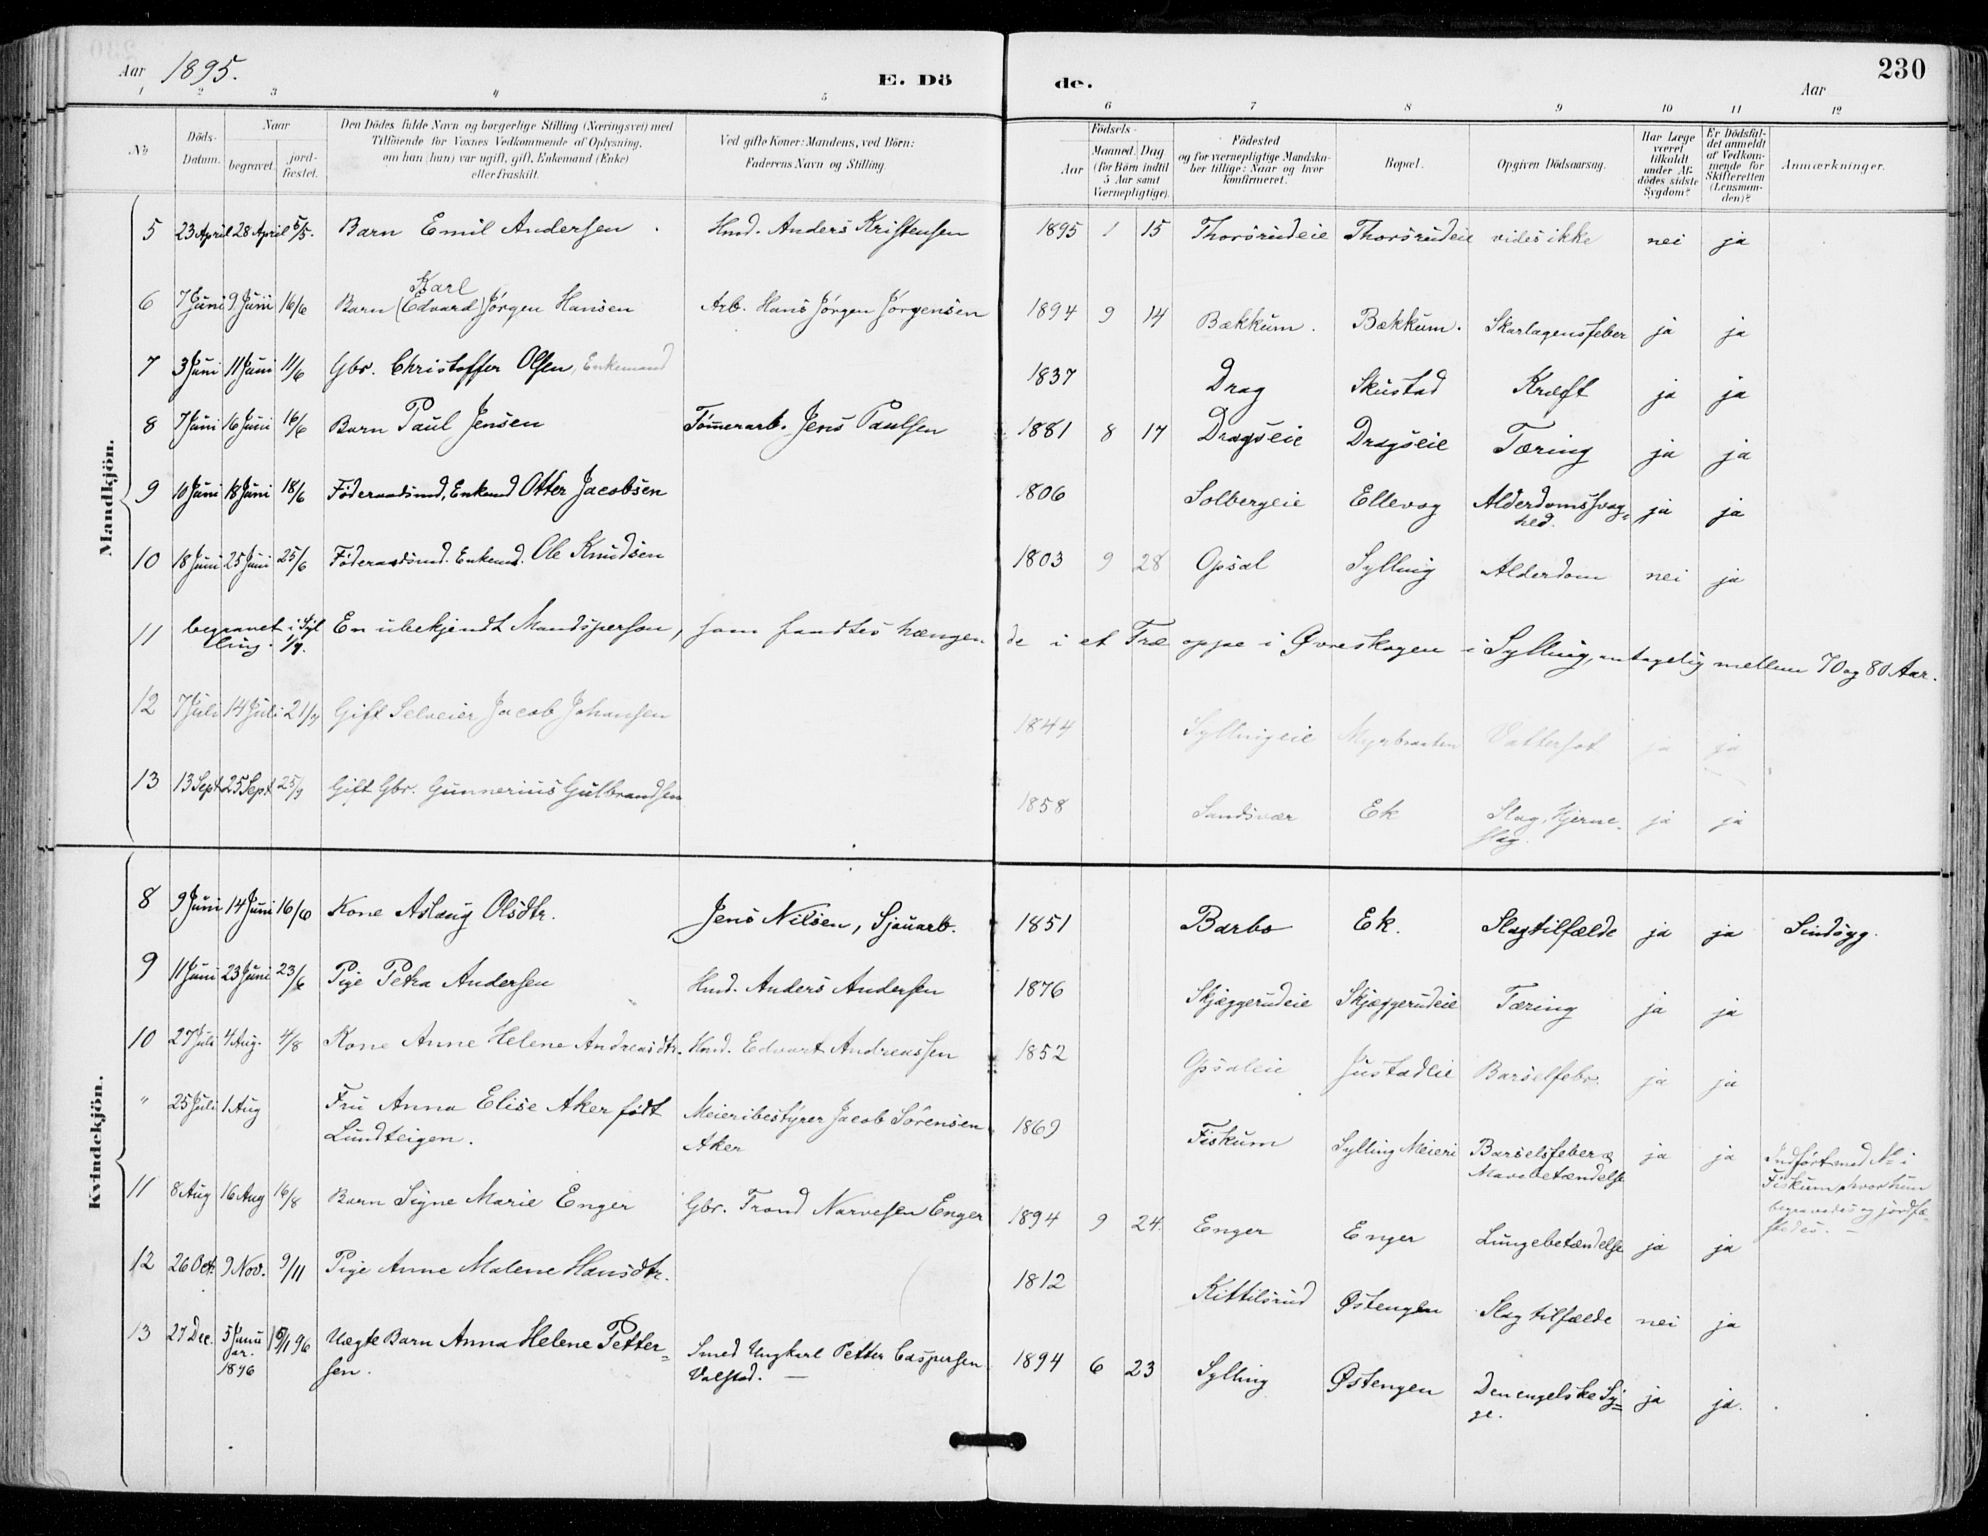 230
Aar 1895.
E. Dö
de.
Aar
1 2 3 4 5 6 7 8 9 10 11 12
No
Döds-Datum.
Naar
begravet.
jord-fæstet.
Den Dödes fulde Navn og borgerlige Stilling (Næringsvei) med
Tilföiende for Voxnes Vedkommende af Oplysning,
om han (hun) var ugift, gift, Enkemand (Enke)
eller fraskilt.
Ved gifte Koner: Mandens, ved Börn:
Faderens Navn og Stilling.
Födsels-
Aar
Maaned. Dag
(for Börn indtil
5 Aar samt
Værnepligtige).
Födested
og for værnepligtige Mandska-
ber tillige: Naar og hvor
Konfirmeret.
Bopæl.
Opgiven Dödsaarsag.
Har Læge
været
tilkaldt
under Af-
dödes sidste
Sygdom?
Er Dödsfal-
det anmeldt
af Vedkom-
mende for
Skifteretten
(Lensman-
den)?
Anmærkninger.
Mandkjön.
5 23 April 28 April 5/5. Barn Emil Andersen Hmd. Anders Kristensen 1895 1 15 Thorsrudeie Thorsrudeie vides ikke nei ja
Karl
6 7 Juni 9 Juni 16/6 Barn (Edvard) Jørgen Hansen Arb. Hans Jørgen Jørgensen 1894 9 14 Bækkum. Bækkum. Skarlagensfeber ja ja
7 3 Juni 11 Juni 11/6 Gbr. Christoffer Olsen, Enkemand 1837 Drag Skustad Kræft ja ja
8 7 Juni 16 Juni 16/6 Barn Paul Jensen Tømmerarb. Jens Paulsen 1881 8 17 Dragseie Dragseie Tæring ja ja
9 10 Juni 18 Juni 18/6 Føderaadsmd, Enkemd Otter Jacobsen 1806 Solbergeie Ellevog Alderdomssvag=
hed. ja ja
10 18 Juni 25 Juni 25/6 Føderaadsmd. Enkemd. Ole Knudsen 1803 9 28 Opsal Sylling Alderdom nei ja
11 begravet i Syl
ling. En ubekjendt Mandsperson, som fandtes hængen de i et Træ oppe i Øvreskogen i Sylling, antagelig mellem 70 og 80 Aar.
12 7 Juli 14 Juli 21/7 Gift Selveier Jacob Johansen 1844 Syllingeie Myrbraaten Vattersot ja ja
13 13 Sept 25 Sept 25/9 Gift Gbr. Gunnerius Gulbrandsen 1858 Sandsvær Ek Slag, Hjerne-
slag. ja ja
Kvindekjön.
8 9 Juni 14 Juni 16/6 Kone Aslaug Olsdtr. Jens Nilsen, Sjauarb. 1851 Barbo Ek. Slagtilfælde ja ja Sindsyg.
9 11 Juni 23 Juni 23/6 Pige Petra Andersen Hmd. Anders Andersen 1876 Skjæggerudeie Skjæggerudeie Tæring ja ja
10 27 Juli 4 Aug. 4/8 Kone Anne Helene Andreasdtr. Hmd. Edvart Andreassen 1852 Opsaleie Justadeie Barselfebr. ja ja
" 25 Juli 1 Aug Fru Anna Elise Aker født
Lundteigen. Meieribestyrer Jacob Sørensen
Aker 1869 Fiskum Sylling Meieri Barselsfeber &
Mavebetændelse ja ja Indført med No i
Fiskum, hvor hun
begravedes og jordfæ-
stedes.
11 8 Aug 16 Aug 16/8 Barn Signe Marie Enger Gbr. Trond Narvesen Enger 1894 9 24. Enger Enger Lungebetændelse ja ja
12 26 Oct. 9 Nov. 9/11 Pige Anne Malene Hansdtr. 1812 Kittilsrud Østengen Slagtilfælde nei ja
13 27 Dec. 5 Janu
ar.
1896 5/1 96 Uægte Barn Anna Helene Petter=
sen. Smed Ungkarl Petter Caspersen
Valstad. 1894 6 23 Sylling Østengen Den engelske Sy=
ge. ja ja.